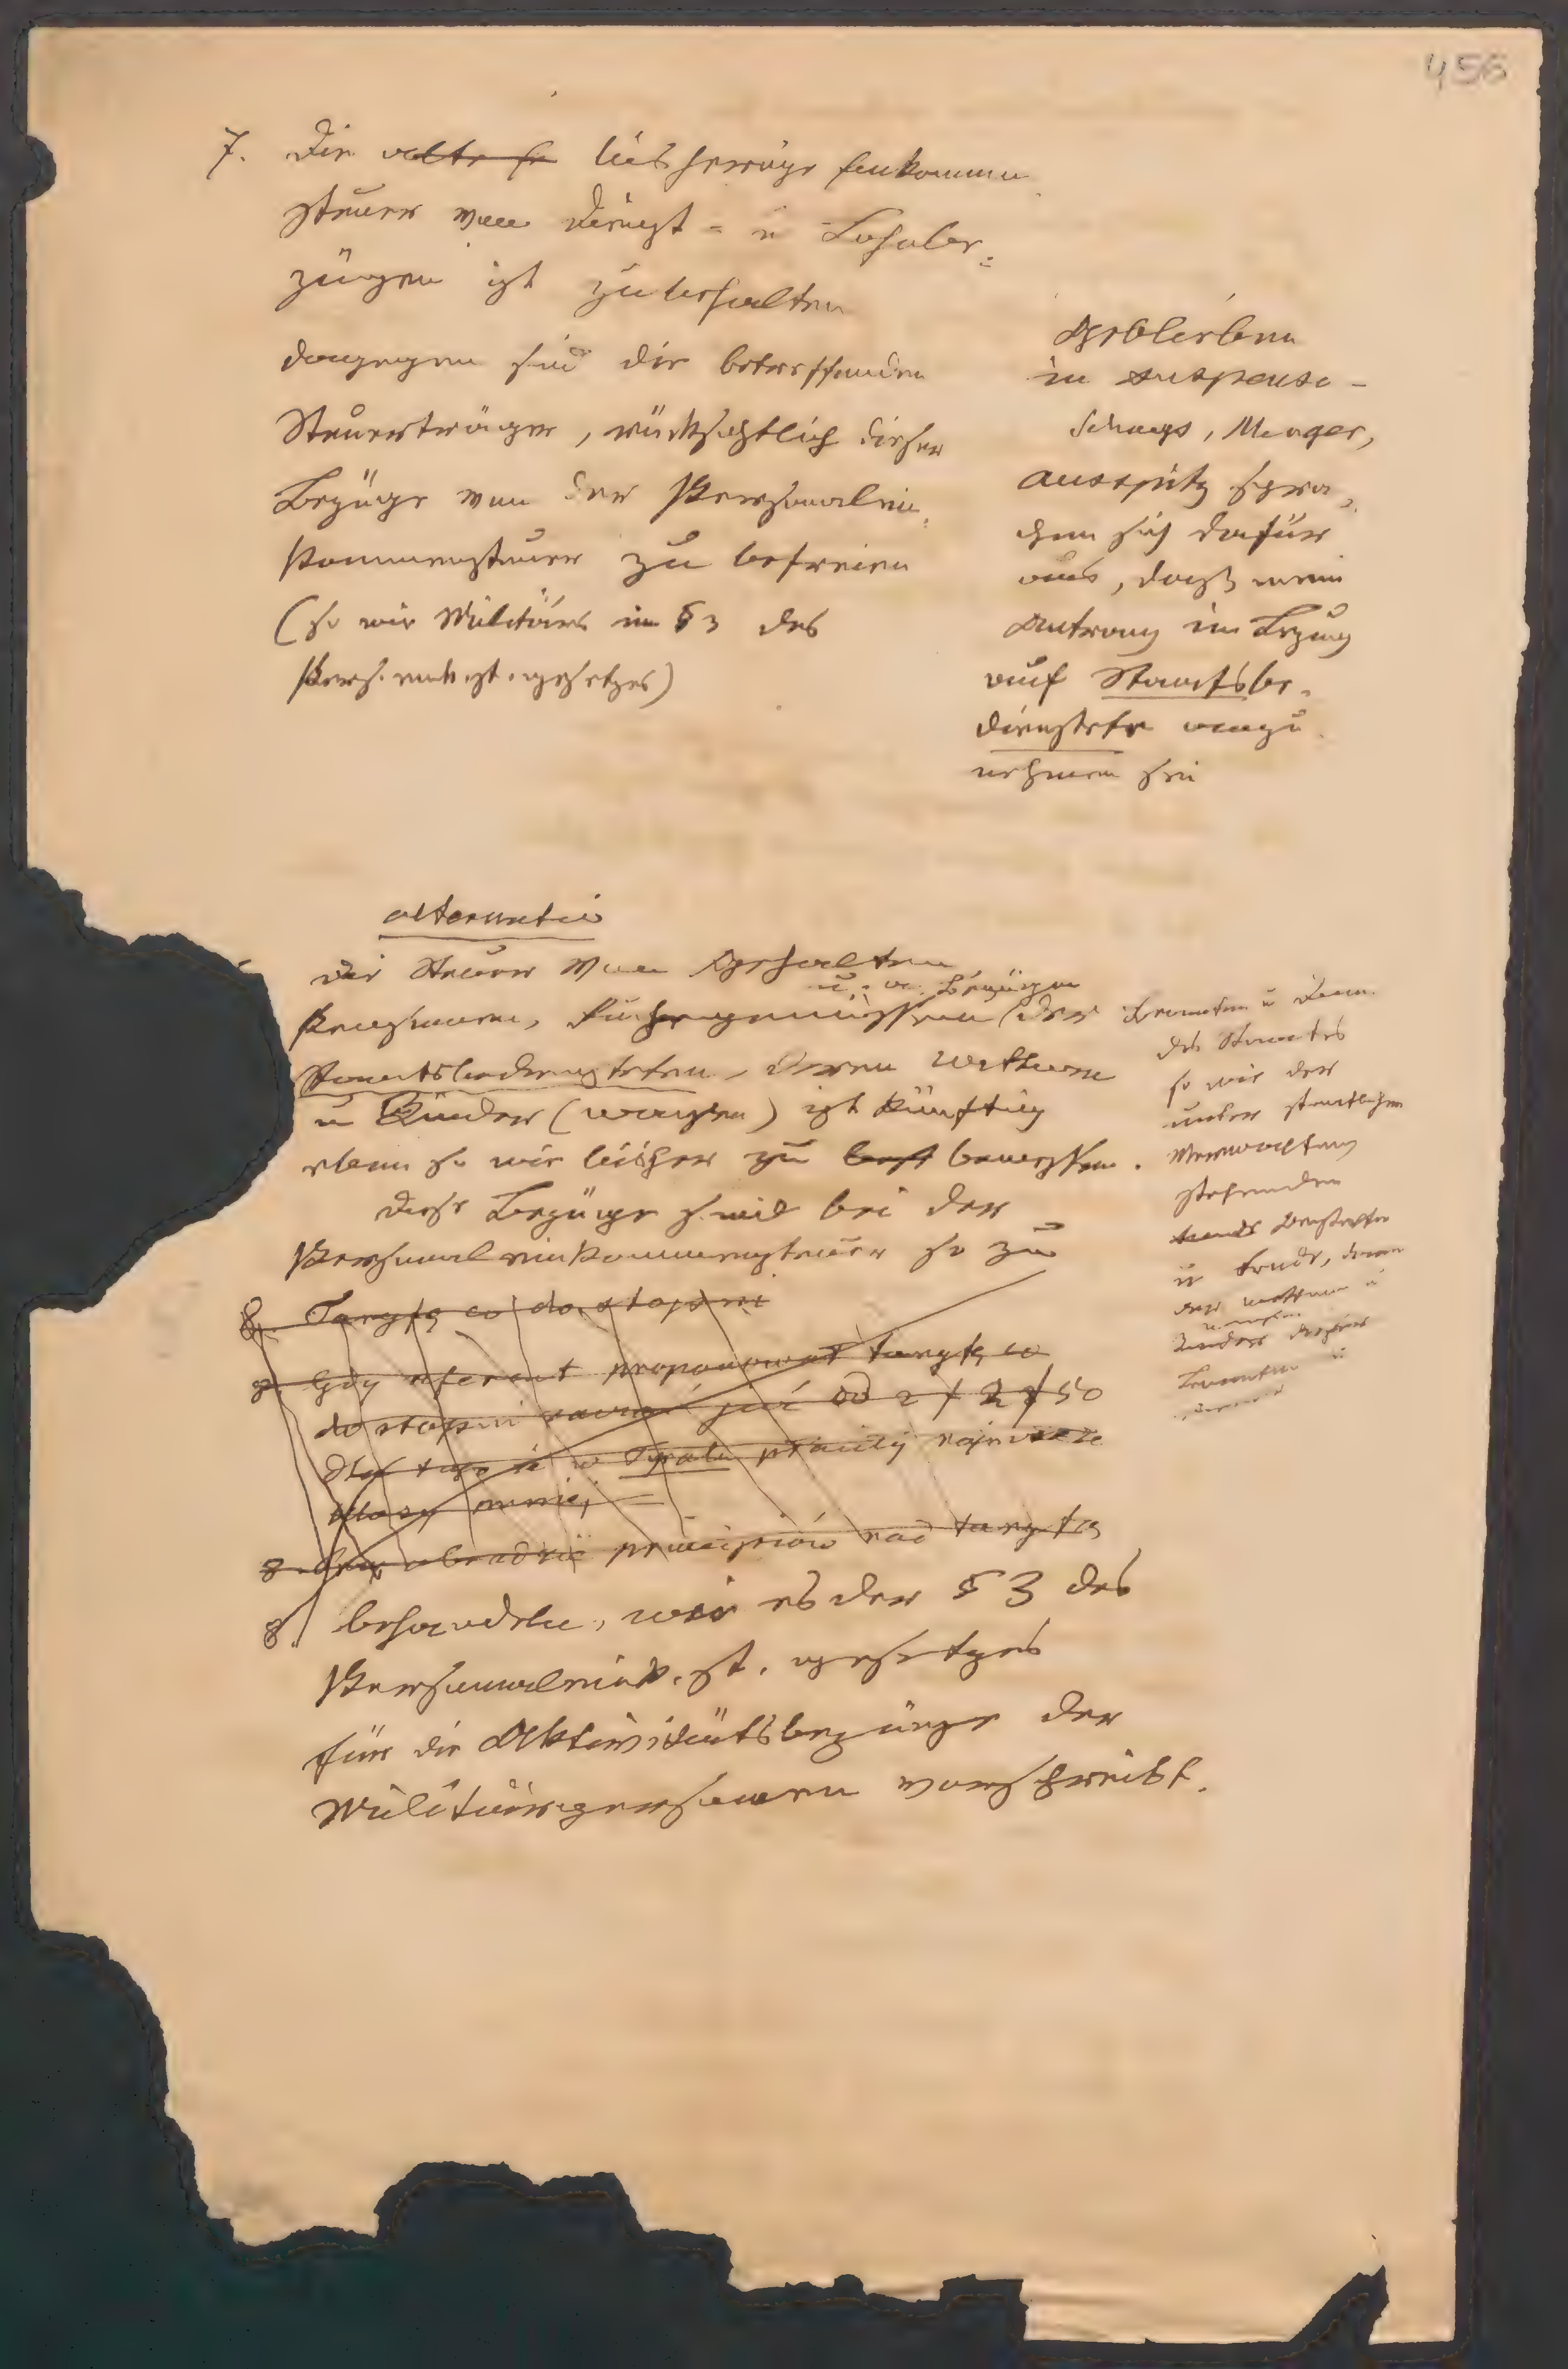 456
7. Die alte bisherige Einkommen
steuer von Dienst = u Lohnbe=
zügen ist zu behalten
dagegen sind die betreffenden
Steuerträger, rücksichtlich dieser
Bezüge von der Personalein=
kommensteuer zu befreien
(so wie Militärs im § 3 des
Pers. eink. st. gesetzes)
Geblieben
in suspenso -
Menger,
Auspitz spra=
chen sich dafür
aus, dass mein
Antrag in Bezug
auf Staatsbe=
dienstete anzu
nehmen sei
alternativ
die Steuer von Gehalten
u. a. Bezügen
Pensionen, der
Staatsbediensteten, deren Wittwen
u Kinder (Waisen) ist künftig
eben so wie bisher zu bemessen.
Diese Bezüge sind bei der
Personaleinkommensteuer so zu
Beamten u Dien.
des Staates
so wie der
unter staatlicher
Verwaltung
stehenden
u Fonde, dann
der Wittwen u
Kinder dieser
Beamten u
8. Taryfa co do stopni
8. Gdy referent proponował taryfę co
do stopni już od 2 50
dla tego że w Tyrolu płacily najwyższe
klasy mniej
8. principiów nad taryfą
8. behandeln, wie es der § 3 des
Personaleink. st. gesetzes
für die Aktivitätsbezüge der
Militärpersonen vorschreibt.